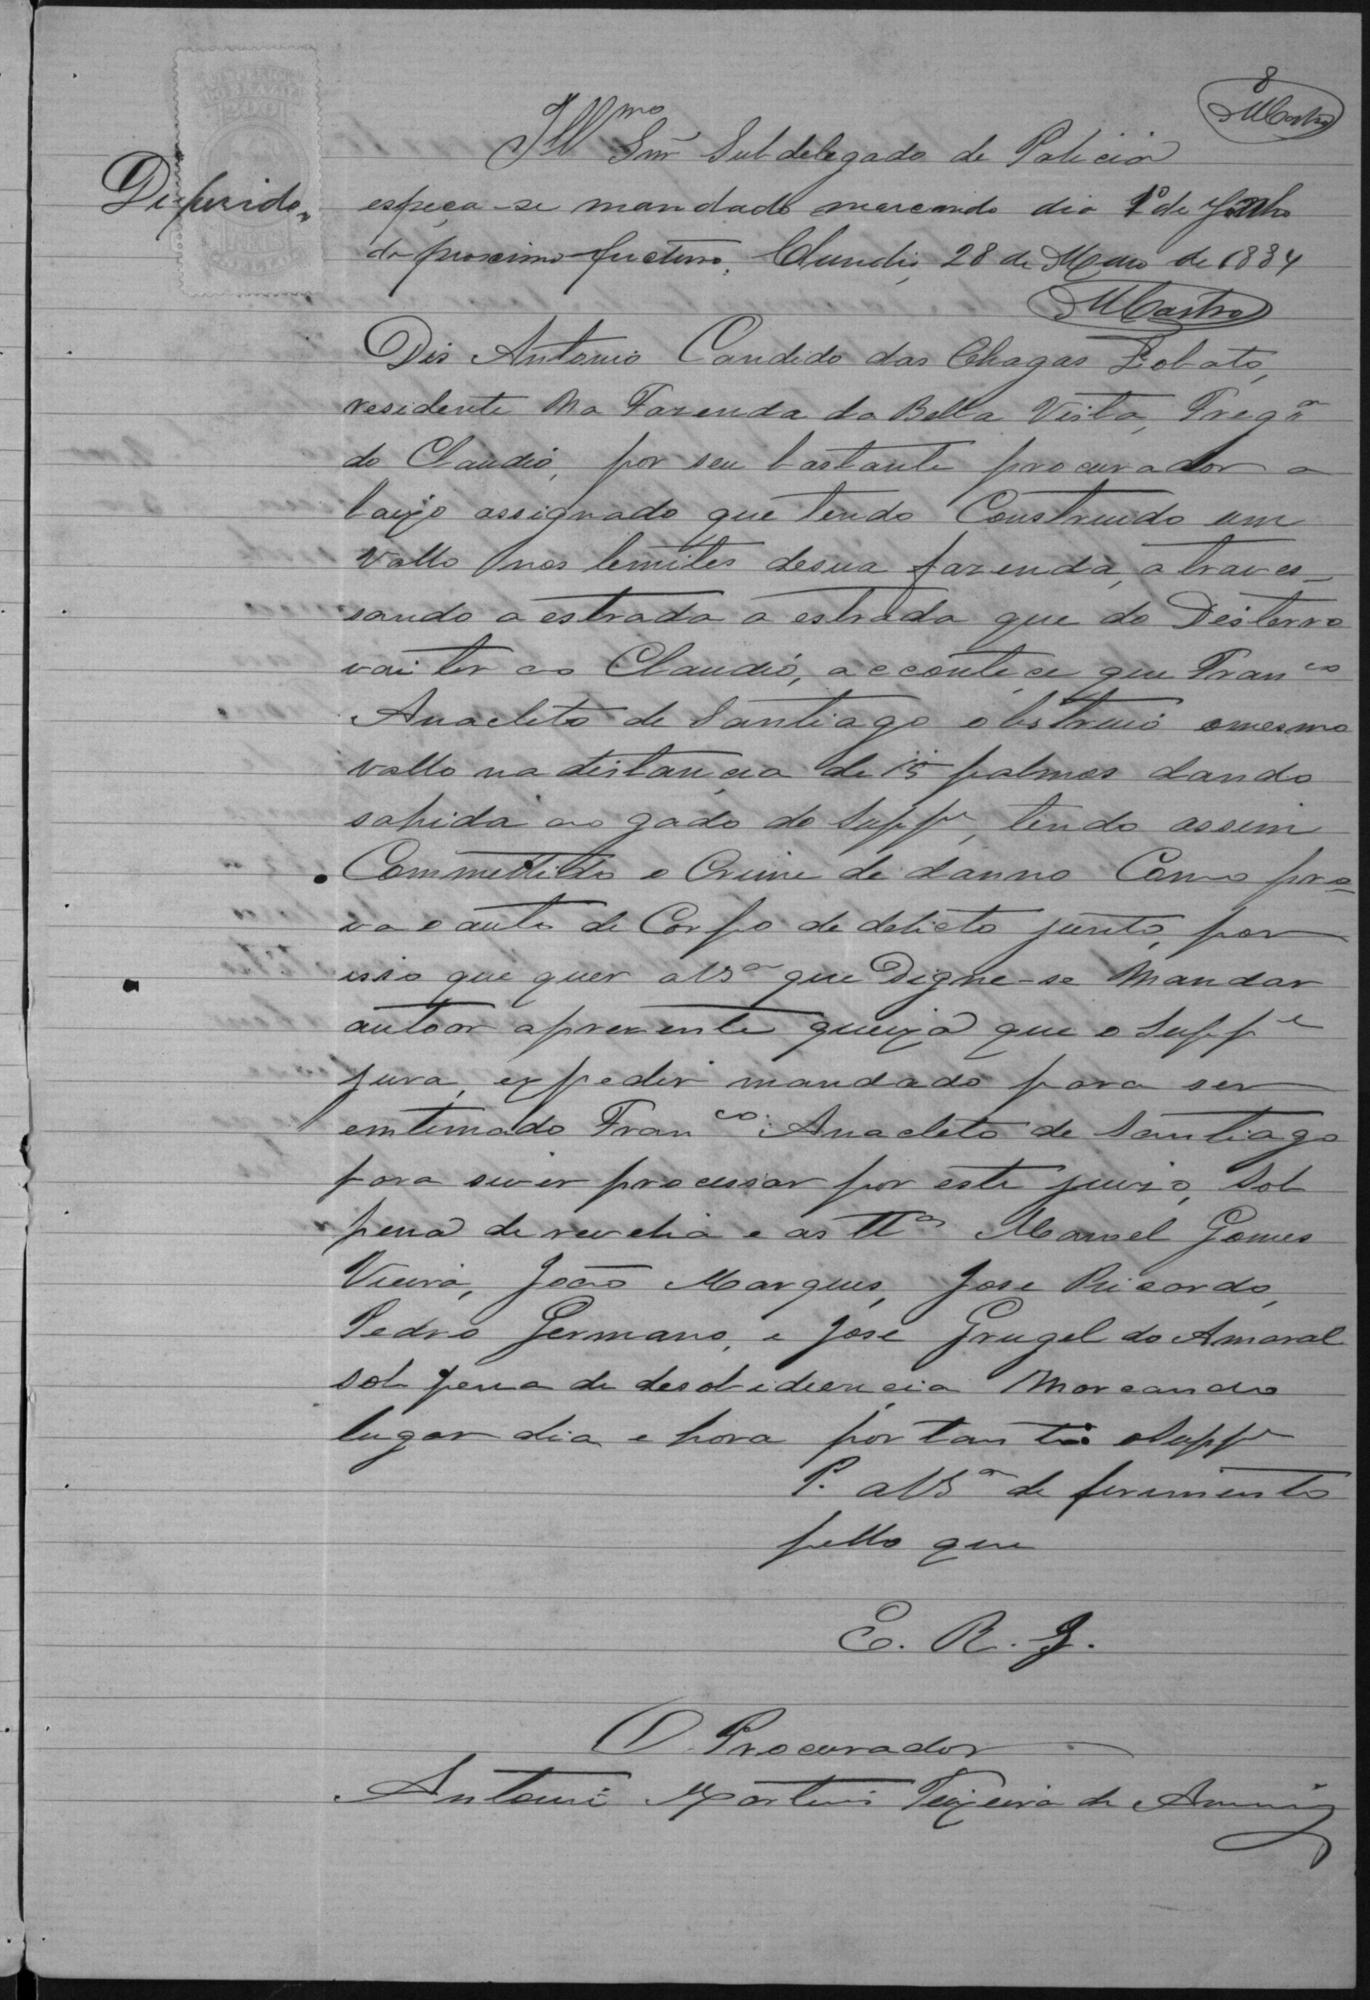 8
MCastro
Illmo Snr Subdelegado de Policia
Deferido, espeça-se mandado marcando dia 1º de Junho
do proximo fucturo, Claudio, 28 de Maio de 1884
MCastro
Dis Antonio Candido das Chagas Lobato,
residente na Fazenda da Bella Vista, Fregª
do Claudio, por seu bastante procurador a
baixo assignado que tendo Construido um
vallo nos lemites desua fazenda, atraves-
sando a estrada a estrada que do Desterro
vai ter ao Claudio, accontece que Franco
Anacleto de Santiago obstruio omesmo
vallo na distancia de 15 palmos dando
sahida ao gado do Suppe, tendo assim
Commettido o Crime de danno Como pro-
va o auto de Corpo de delicto junto, por
isso que quer a VSª que Digne-se Mandar
autoar apresente queixa que o Suppe
jura, expedir mandado para ser
entimado Franco Anacleto de Santiago
para sever processar por este juizo, Sob
pena de revelia e as ttas Manoel Gomes
Vieira, João Marques, Jose Ricardo,
Pedro Germano, e Jose Grugel do Amaral
sob pena de desobidiencia Marcando
lugar dia e hora portanto oSuppe
P. a VSª deferimento
pello que
E. R. J.
O Procurador
Antonio Martins Teixeira de